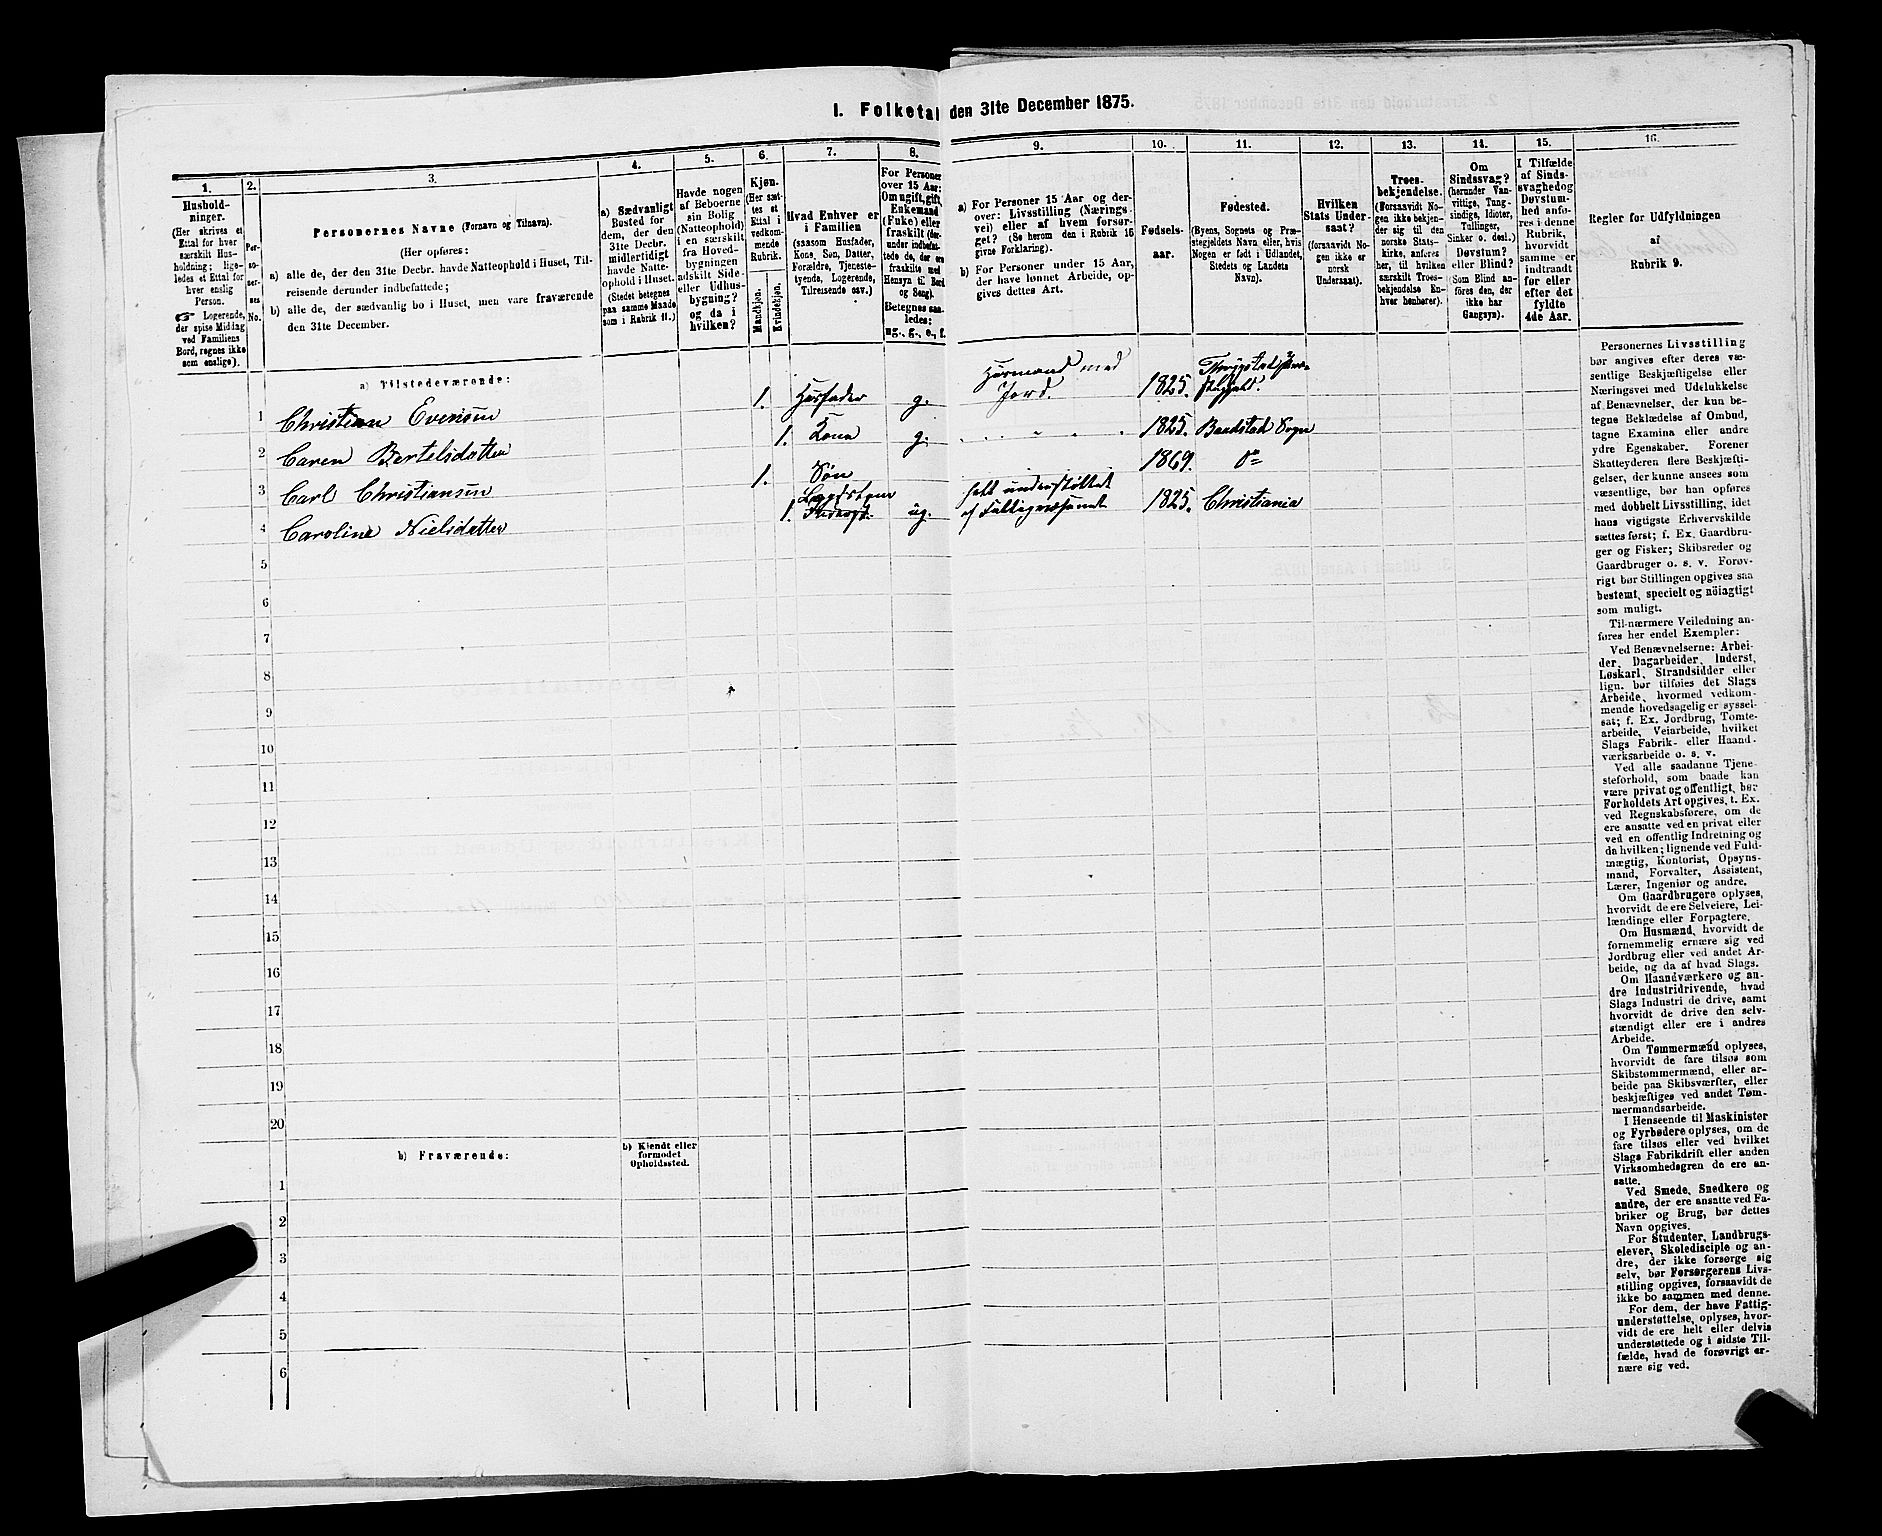 1. Folketal den 31te December 1875.
1.
2.
3.
4.
5.
6.
7.
8.
9.
10.
11.
12.
13.
14.
15.
16.
Hushold-
ninger.
(Her skrives et
Ettal for hver
særskilt Hus-
holdning; lige-
ledes et Ettal for
hver enslig
Person.
☞ Logerende,
der spise Middag
ved Familiens
Bord, regnes ikke
som enslige).
Per-
so-
ner-
nes
No.
Personernes Navne (Fornavn og Tilnavn).
(Her opføres:
a) alle de, der den 31te Decbr. havde Natteophold i Huset, Til-
reisende derunder indbefattede;
b) alle de, der sædvanlig bo i Huset, men vare fraværende
den 31te December.
a) Sædvanligt
Bosted for
dem, der den
31te Decbr.
midlertidigt
havde Natte-
ophold i Huset.
(Stedet betegnes
paa samme Maade
som i Rubrik 11.)
Havde nogen
af Beboerne
sin Bolig
(Natteophold)
i en særskilt
fra Hoved-
bygningen
adskilt Side-
eller Udhus-
bygning?
og da i
hvilken?
Kjøn.
(Her sæt-
tes et
Ettal i
vedkom-
mende
Rubrik.
Mandkjøn.
Kvindekjøn.
Hvad Enhver er
i Familien
(saasom Husfader,
Kone, Søn, Datter,
Forældre, Tjeneste-
tyende, Logerende,
Tilreisende osv.)
For Personer
over 15 Aar:
Om ugift, gift,
Enkemand
(Enke) eller
fraskilt (der-
under indbefat-
tede de, der ere
fraskilte med
Hensyn til Bord
og Seng).
Betegnes saa-
ledes:
ug., g., e., f.
a) For Personer 15 Aar og der-
over: Livsstilling (Nærings-
vei) eller af hvem forsør-
get? (Se herom den i Rubrik 16
givne Forklaring).
b) For Personer under 15 Aar,
der have lønnet Arbeide, op-
gives dettes Art.
Fødsels-
aar.
Fødested.
(Byens, Sognets og Præ-
stegjeldets Navn eller, hvis
Nogen er født i Udlandet,
Stedets og Landets
Navn).
Hvilken
Stats Under-
saat?
(forsaavidt No-
gen ikke er
norsk
Undersaat).
Troes-
bekjendelse.
(Forsaavidt No-
gen ikke bekjen-
der sig til den
norske Stats-
kirke, anføres
her, til hvilken
særskilt Troes-
bekjendelse En-
hver henhører).
Om
Sindssvag?
(herunder Van-
vittige, Tung-
sindige, Idioter,
Tullinger,
Sinker o. desl.)
Døvstum?
eller Blind?
(Som Blind an-
føres den, der
ikke har
Gangsyn).
I Tilfælde
af Sinds-
svaghed og
Døvstum-
hed anfø-
res i denne
Rubrik,
hvorvidt
samme er
indtraadt
før eller
efter det
fyldte
4de Aar.
Regler for Udfyldningen
af
Rubrik 9.
a) Tilstedeværende:
1 Christian Evensen 1. Husfader g. Husmand med Jord. 1825.
2 Caren Bertelsdatter 1. Kone g. " " " " 1825. Sogn
3 Carl Christiansen 1. Søn 1869. Do
4 Caroline Nielsdatter 1. ug. helt understøttet af 1825. Christiania
5
6
7
8
9
10
11
12
13
14
15
16
17
18
19
20
b) Fraværende:
b) Kjendt eller
formodet
Opholdssted.
1
2
3
4
5
6
Personernes Livsstilling
bør angives efter deres væ-
sentlige Beskjæftigelse eller
Næringsvei med Udelukkelse
af Benævnelser, der kun be-
tegne Beklædelse af Ombud,
tagne Examina eller andre
ydre Egenskaber. Forener
Skatteyderen flere Beskjæfti-
gelser, der kunne ansees som
væsentlige, bør han opføres
med dobbelt Livsstilling, idet
hans vigtigste Erhvervskilde
sættes først; f. Ex. Gaardbru-
ger og Fisker; Skibsreder og
Gaardbruger o. s. v. Forøv-
rigt bør Stillingen opgives saa
bestemt, specielt og nöiagtigt
som muligt.
Til nærmere Veiledning an-
føres her endel Exempler:
Ved Benævnelserne: Arbei-
der, Dagarbeider, Inderst,
Løskarl, Strandsidder eller
lign. bør tilføies det Slags
Arbeide, hvormed vedkom-
mende hovedsagelig er syssel-
sat; f. Ex. Jordbrug, Tomte-
arbeide, Veiarbeide, hvilket
Slags Fabrik- eller Haand-
værksarbeide o. s. v.
Ved alle saadanne Tjene-
steforhold, som baade kan
være privat og offentligt, bør
Forholdets Art opgives, t. Ex.
ved Regnskabsførere, om de
ere ansatte ved en privat eller
ved en offentlig Indretning og
da hvilken; lignende ved Fuld-
mægtig, Kontorist, Opsyns-
mand, Forvalter, Assistent,
Lærer, Ingeniør og andre.
Om Gaardbrugere oplyses,
hvorvidt de ere Selveiere, Lei-
lændinge eller Forpagtere.
Om Husmænd, hvorvidt de
fornemmelig ernære sig ved
Jordbrug eller ved andet Ar-
beide, og da af hvad Slags.
Om Haandværkere og an-
dre Industridrivende, hvad
Slags Industri de drive, samt
hvorvidt de drive den selv-
stændigt eller ere i andres
Arbeide.
Om Tømmermænd oplyses,
hvorvidt de fare tilsøs som
Skibstømmermænd, eller ar-
beide paa Skibsværfter, eller
beskjæftiges ved andet Tøm-
mermandsarbeide.
I Henseende til Maskinister
og Fyrbødere oplyses, om de
fare tilsøs eller ved hvilket
Slags Fabrikdrift eller anden
Virksomhedsgren de ere an-
satte.
Ved Smede, Snedkere og
andre, der ere ansatte ved Fa-
briker og Brug, bør dettes
Navn opgives.
For Studenter, Landbrugs-
elever, Skoledisciple og an-
dre, der ikke forsørge sig
selv, bør Forsørgerens Livs-
stilling opgives, forsaavidt de
ikke bo sammen med denne.
For dem, der have Fattig-
understøttelse, oplyses, hvor-
vidt de ere helt eller delvis
understøttede og i sidste Til-
fælde, hvad de forøvrigt er-
nære sig ved.